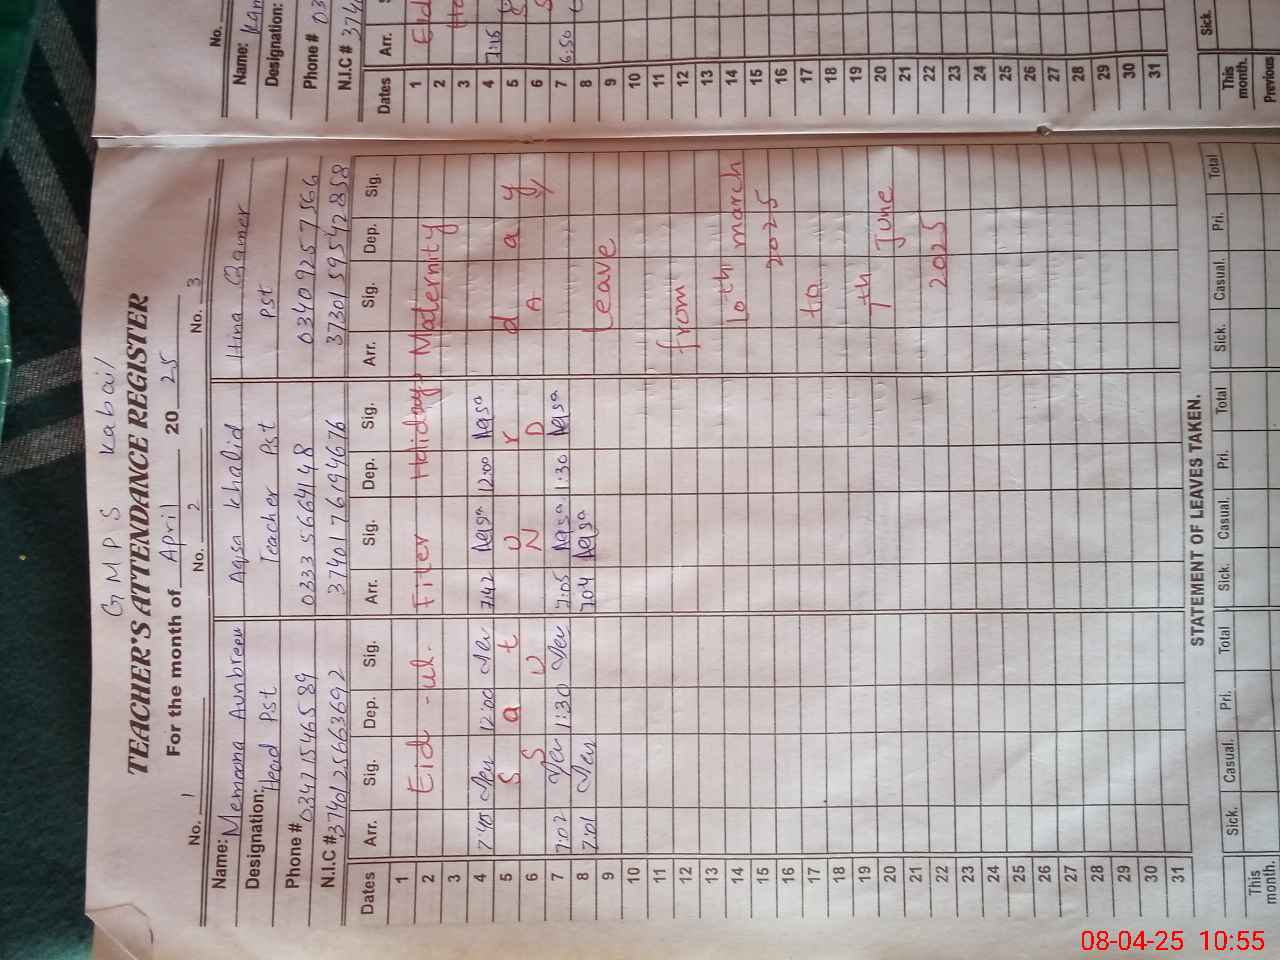 G M P S Kabail
TEACHER'S ATTENDANCE REGISTER
For the month of April 2025
No. 1 No. 2 No. 3
Name: Memoona Aunbreen Aqsa Khalid Hina Qamer
Designation: Head Pst Teacher Pst Pst
Phone # 03471546589 0333 5664148 03409257566
N.I.C # 3740125663692 3740176194676 3730159542858
Dates Arr. Sig. Dep. Sig. Arr. Sig. Dep. Sig. Arr. Sig. Dep. Sig.
1
2 Eid -ul. Fiter Holidays Maternity
3
4 7:45 12:00 7:42 Aqsa 12:00 Aqsa
5 S a t U r d a y
6 S U N D A y
7 7:02 1:30 7:05 Aqsa 1:30 Aqsa
8 7:01 7:04 Aqsa
9 Leave
10
11
12 from
13
14 10th march
15 2025
16
17 to
18
19 7th
20 June
21
22 2025
23
24
25
26
27
28
29
30
31
STATEMENT OF LEAVES TAKEN.
Sick. Casual. Pri. Total Sick. Casual. Pri. Total Sick. Casual. Pri. Total
This month.
No.
Name:
Designation:
Phone # 03
N.I.C # 374
Dates Arr.
1
2
3
4 7:15
5
6
7 6:50
8
9
10
11
12
13
14
15
16
17
18
19
20
21
22
23
24
25
26
27
28
29
30
31
Sick.
This month.
Previous
08-04-25 10:55